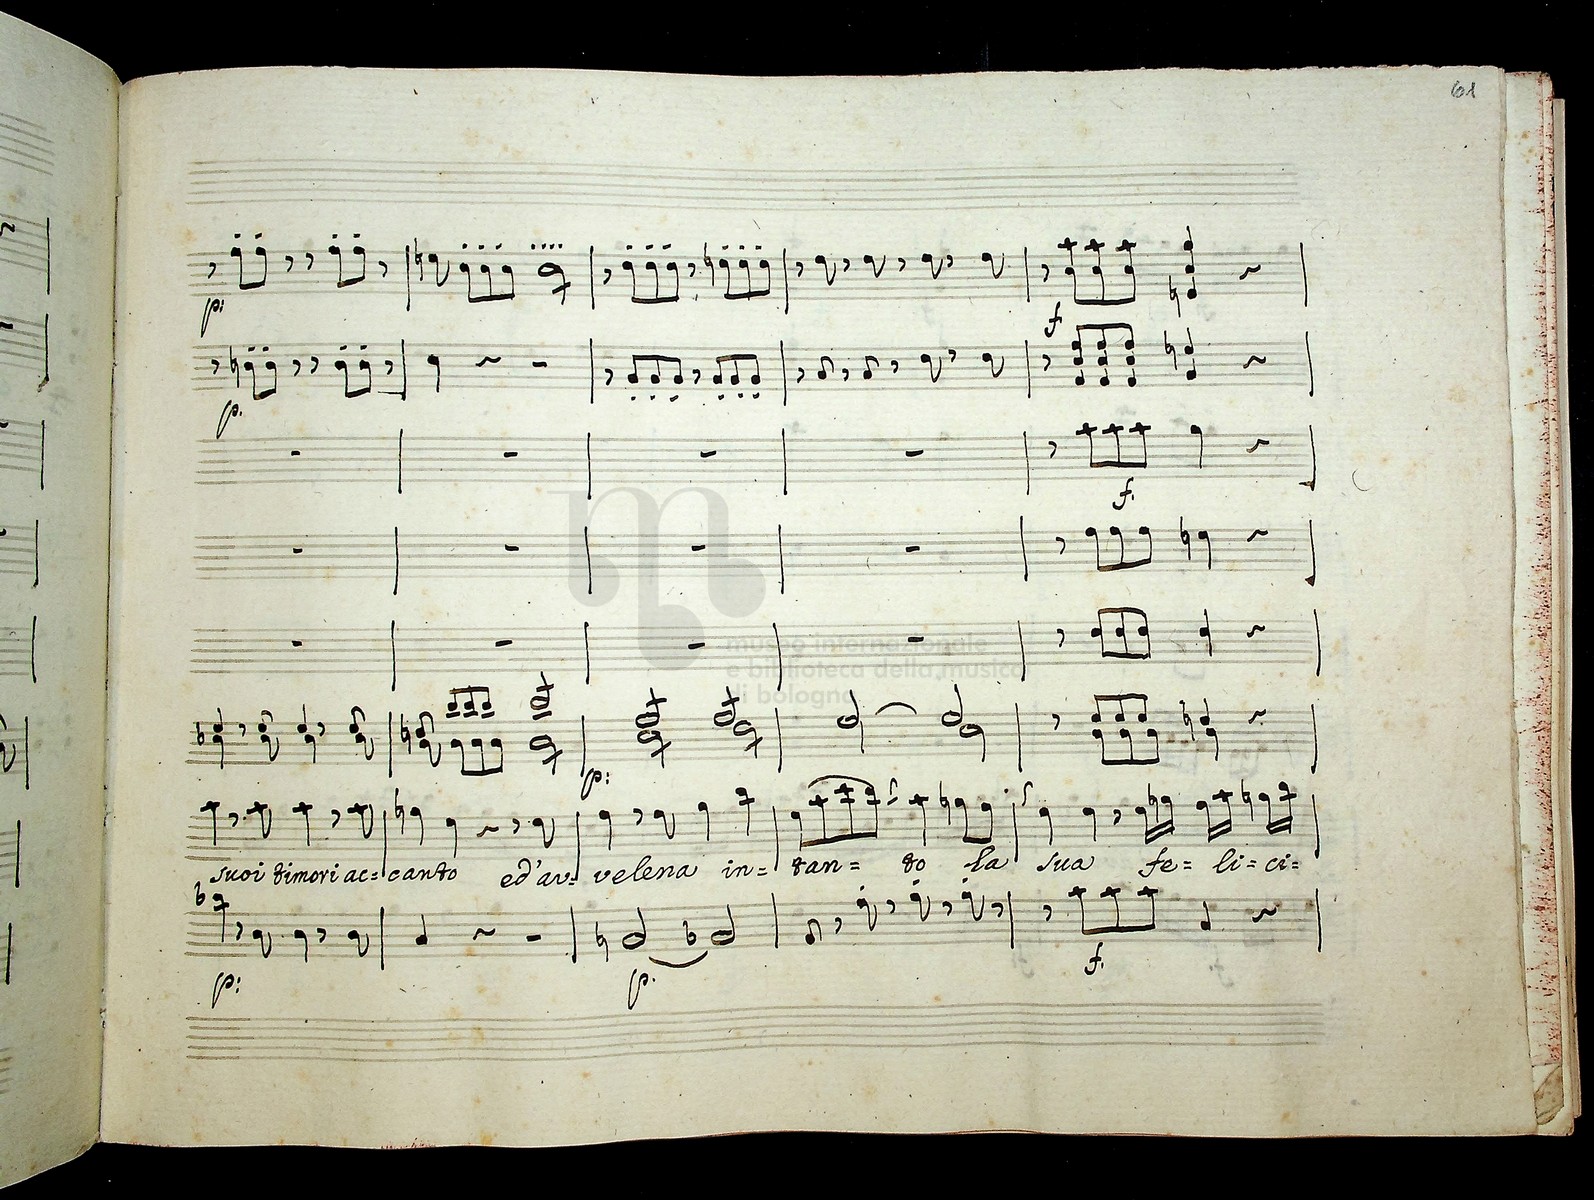 61
p:
f.
p.
f.
museo internazionale
e biblioteca della musica
di bologna
p:
suoi timori ac= canto ed'av= velena in= tan= to la sua fe= li= ci=
p: p. f.